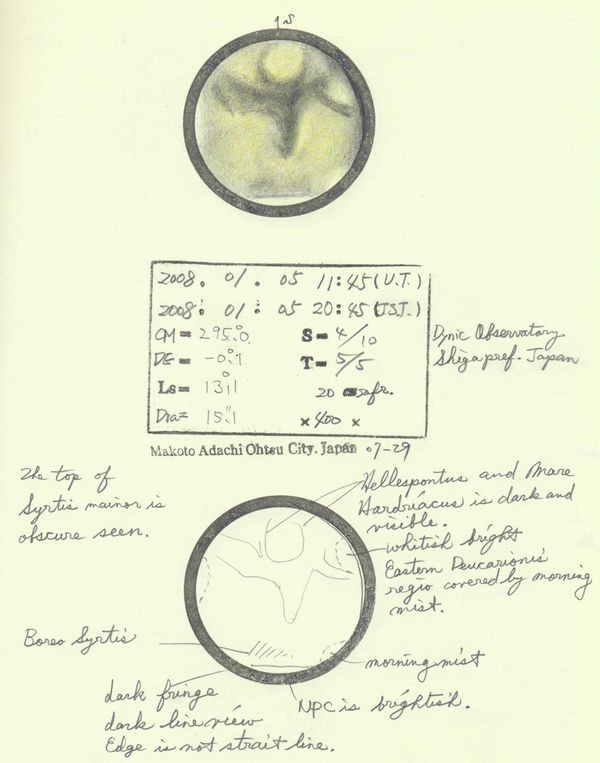 S
2008. 01. 05 11:45 (U.T.)
2008. 01. 05 20:45 (JST.)
CM= 295.°0 S= 4/10
DE= -0.°1 T= 5/5
Ls= 13.°1 20
Dia= 15."1 × 400 ×
Dynic Observatory
Shiga pref. Japan
Makoto Adachi Ohtsu City. Japan 07-29
The top of
Syrtis mainor is
obscure seen.
Hellespontus and Mare
Hardriacus is dark and
visible.
whitish bright
Eastern Deucarionis
regio covered by morning
mist.
Boreo Syrtis
morning mist
dark fringe
dark line view
Edge is not strait line.
NPC is brightish.